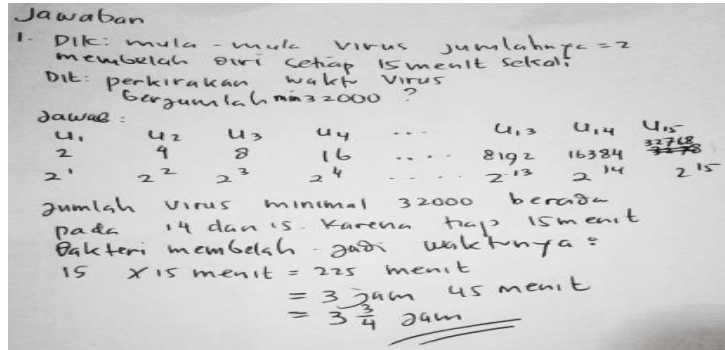 Jawaban
1. Dik: mula-mula virus jumlahnya = 2
membelah diri setiap 15 menit sekali
Dit: perkirakan waktu virus
berjumlah min 32000 ?
Jawab :
U1 U2 U3 U4 ... U13 U14 U15
2 4 8 16 .... 8192 16384 32768
2^1 2^2 2^3 2^4 .... 2^13 2^14 2^15
Jumlah virus minimal 32000 berada
pada 14 dan 15. Karena tiap 15 menit
Bakteri membelah. Jadi waktunya :
15 x 15 menit = 225 menit
= 3 jam 45 menit
= 3 3/4 Jam